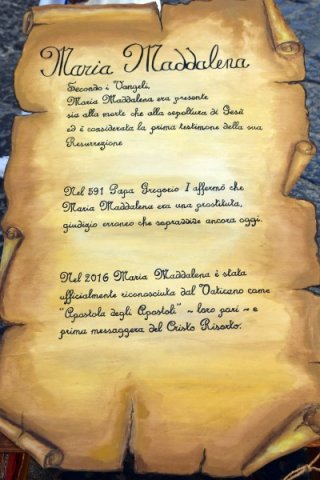 Maria Maddalena
Secondo i Vangeli,
Maria Maddalena era presente
sia alla morte che alla sepoltura di Gesù
ed è considerata la prima testimone della sua
Resurrezione
Nel 591 Papa Gregorio I affermò che
Maria Maddalena era una prostituta,
giudizio erroneo che sopravvive ancora oggi.
Nel 2016 Maria Maddalena è stata
ufficialmente riconosciuta dal Vaticano come
"Apostola degli Apostoli" ~ loro pari ~ e
prima messaggera del Cristo Risorto.